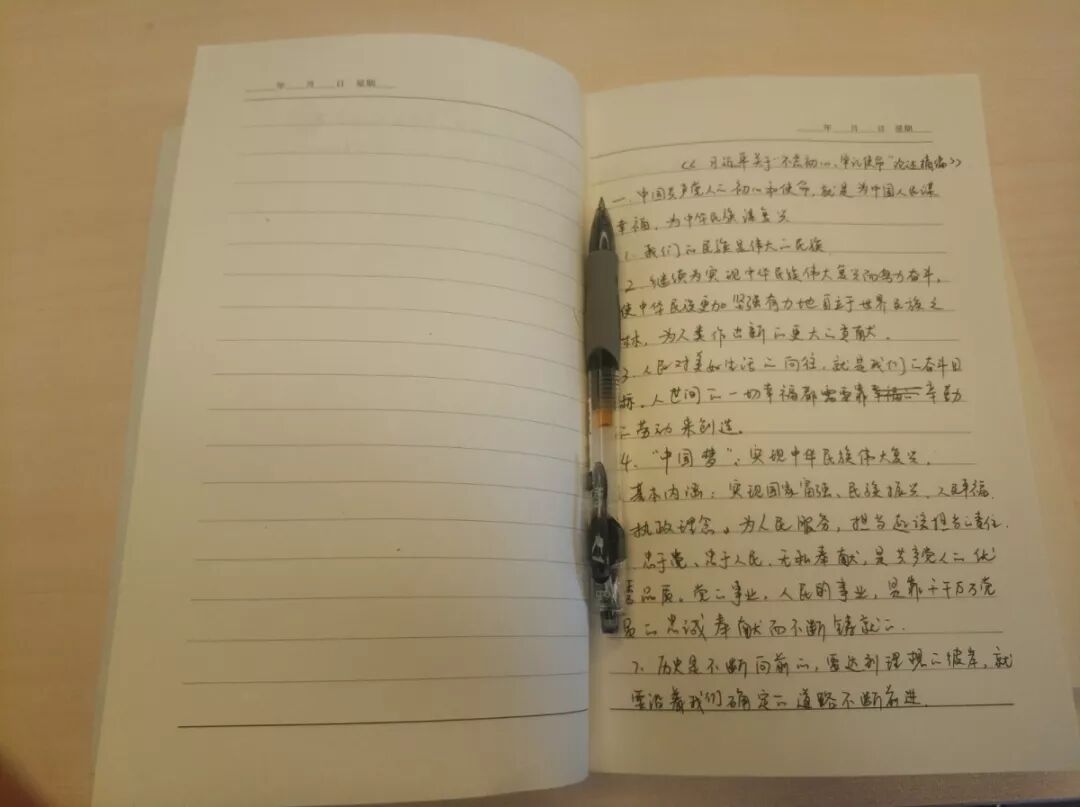 年 月 日 星期
年 月 日 星期
《习近平关于"不忘初心、牢记使命"论述摘编》
一、中国共产党人的初心和使命,就是为中国人民谋
幸福,为中华民族谋复兴
1、我们的民族是伟大的民族
2、继续为实现中华民族伟大复兴而努力奋斗,
使中华民族更加坚强有力地自立于世界民族之
林,为人类作出新的更大的贡献。
3、人民对美好生活的向往,就是我们的奋斗目
标。人世间的一切幸福都需要靠辛勤
的劳动来创造。
4、"中国梦":实现中华民族伟大复兴。
基本内涵:实现国家富强、民族振兴、人民幸福
执政理念:为人民服务,担当起该担当的责任.
忠于党、忠于人民、无私奉献,是共产党人的优
秀品质。党的事业,人民的事业,是靠千千万万党
员的忠诚奉献而不断铸就的.
7、历史是不断向前的,要达到理想的彼岸,就
要沿着我们确定的道路不断前进.